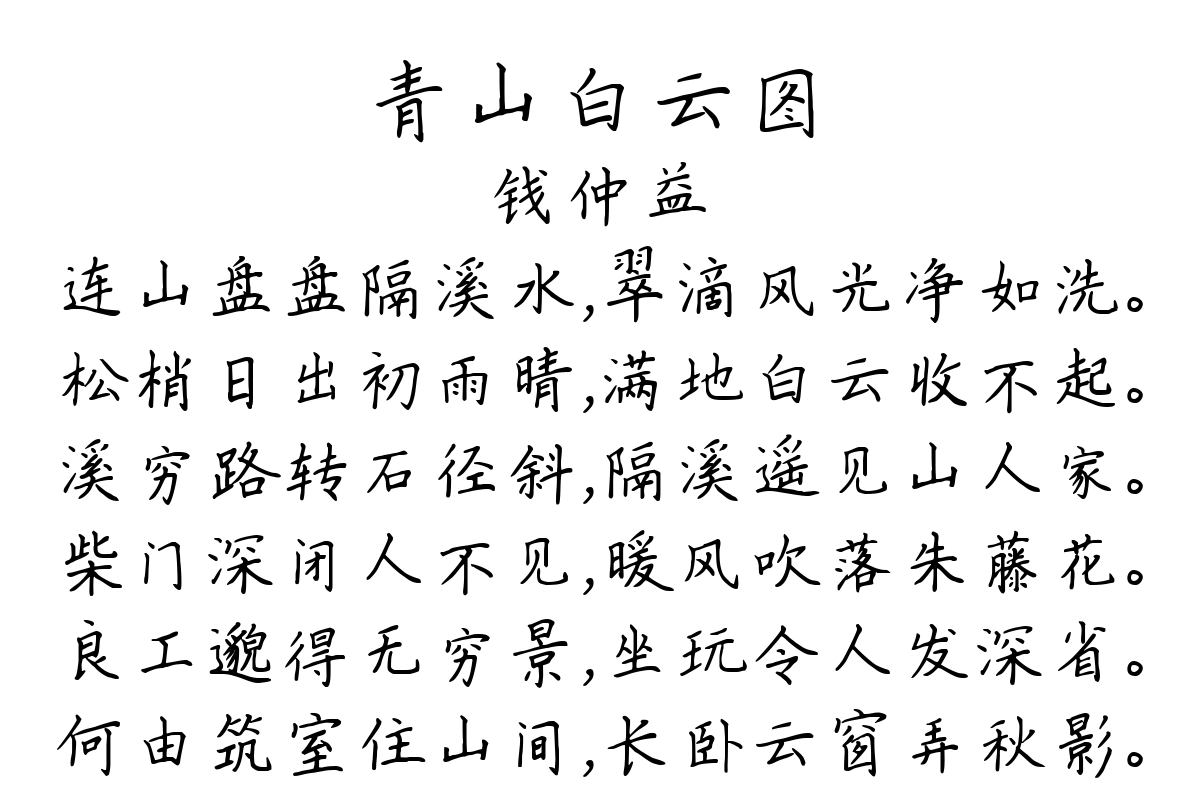 青山白云图
钱仲益
连山盘盘隔溪水,翠滴风光净如洗。
松梢日出初雨晴,满地白云收不起。
溪穷路转石径斜,隔溪遥见山人家。
柴门深闭人不见,暖风吹落朱藤花。
良工邈得无穷景,坐玩令人发深省。
何由筑室住山间,长卧云窗弄秋影。